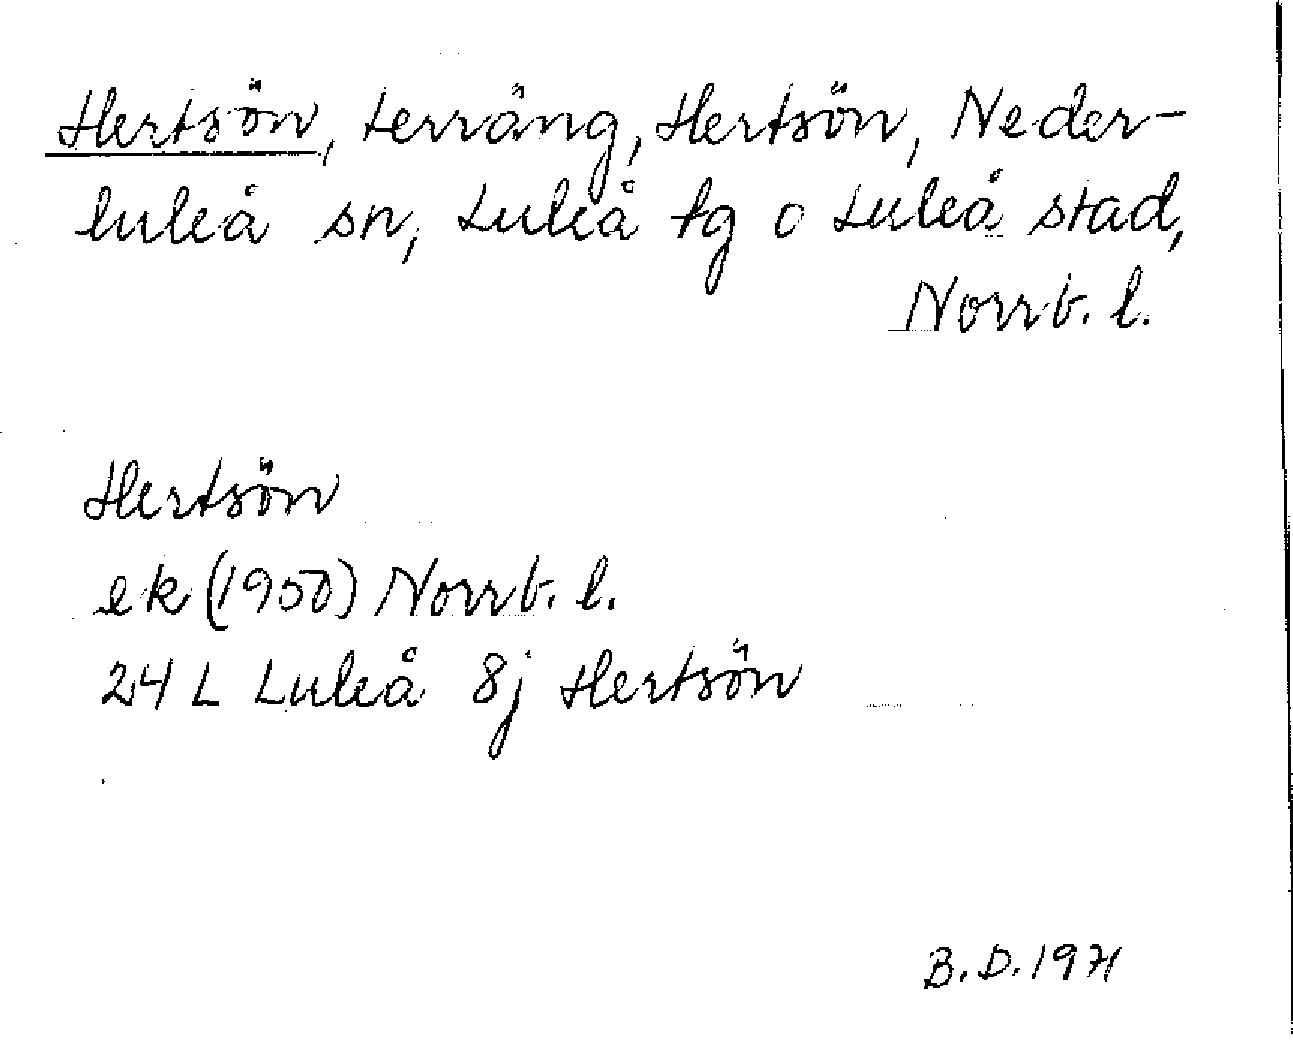 Hertsön, terräng, Hertsön, Neder-
luleå sn, Luleå tg o Luleå stad,
Norrb. l.
Hertsön
ek (1950) Norrb. l.
24 L Luleå 8j Hertsön
B.D. 1971